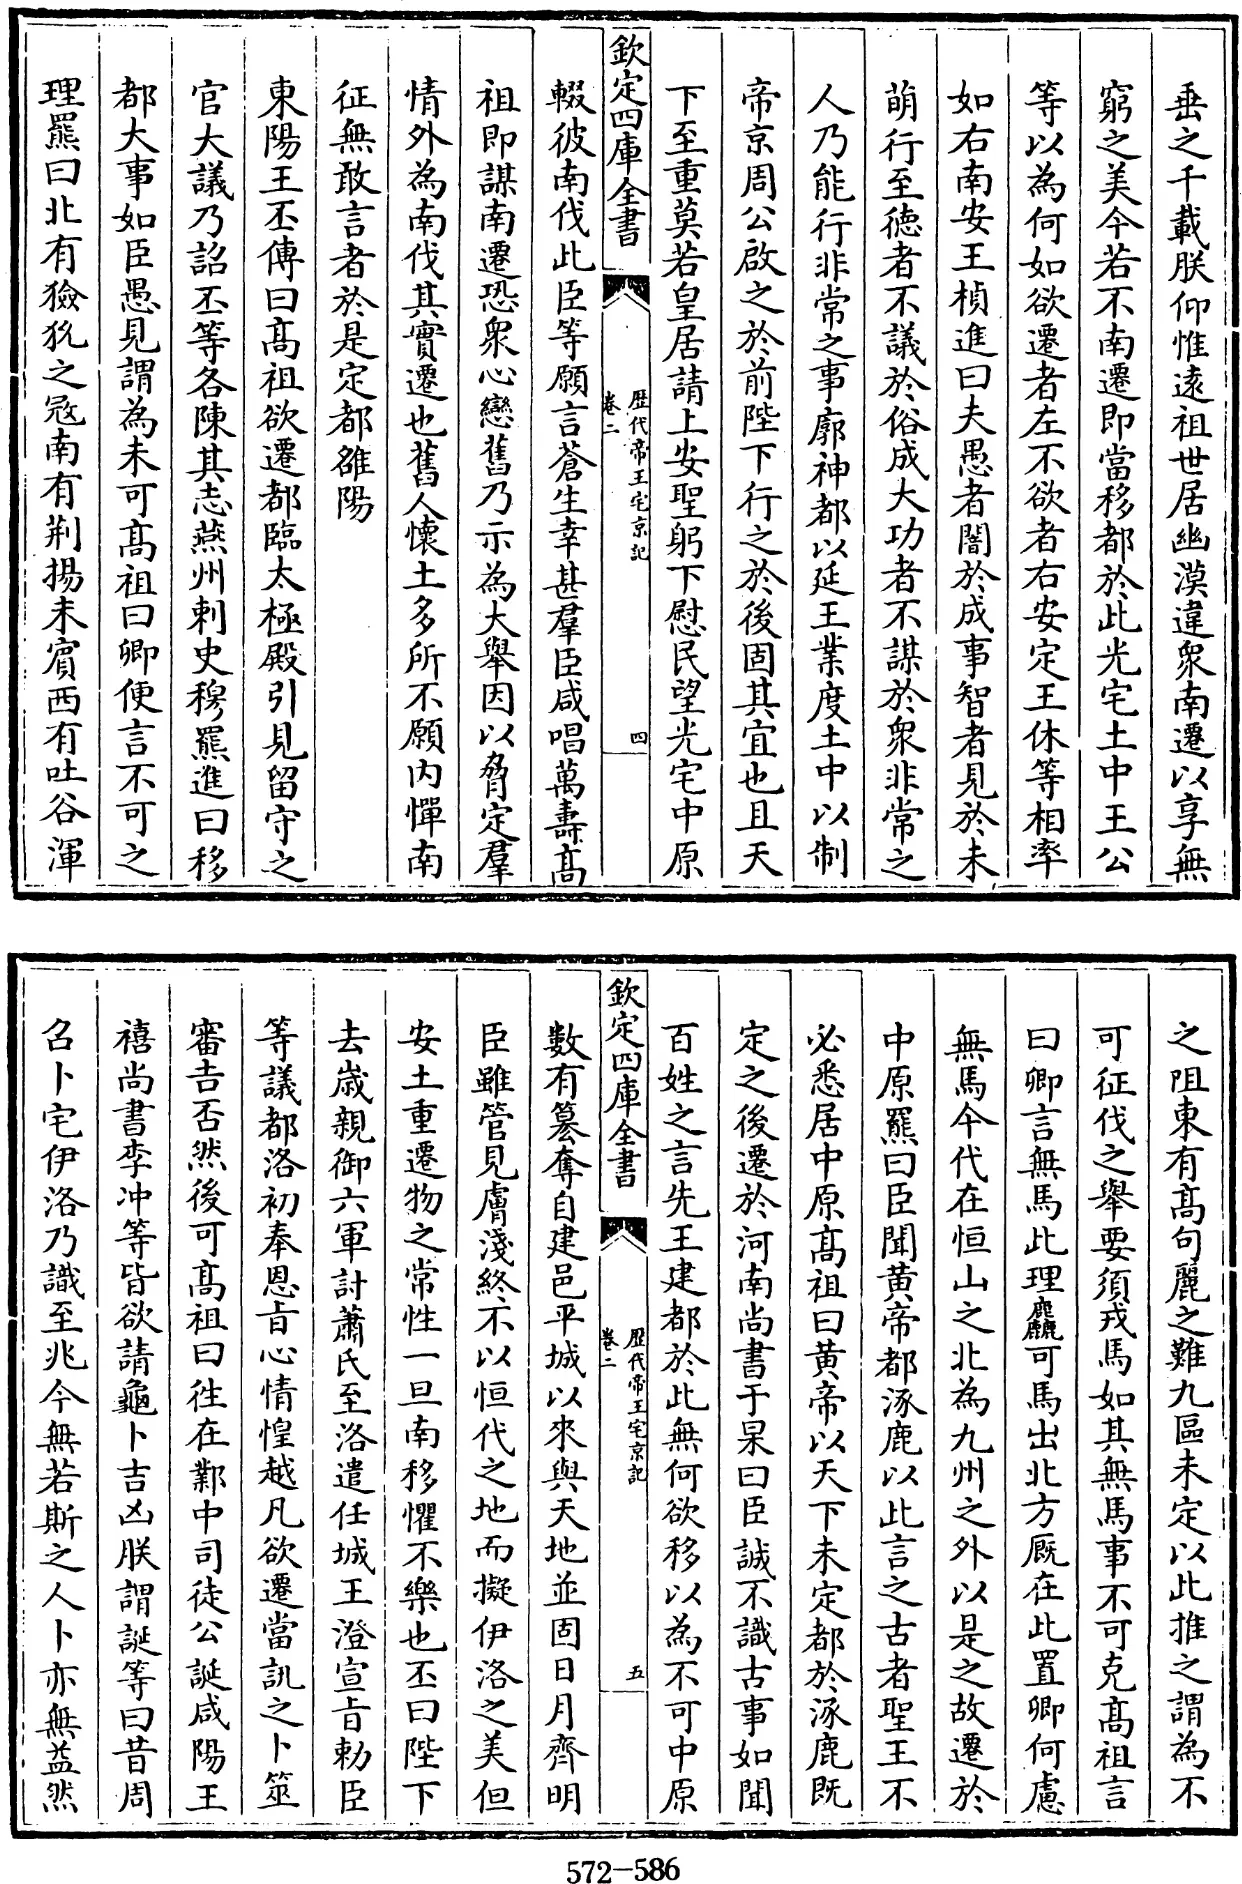 垂之千載朕仰惟遠祖世居幽漠違衆南遷以享無
窮之美今若不南遷即當移都於此光宅土中王公
等以為何如欲遷者左不欲者右安定王休等相率
如右南安王楨進曰夫愚者闇於成事智者見於未
萌行至徳者不議於俗成大功者不謀於衆非常之
人乃能行非常之事廓神都以延王業度土中以制
帝京周公啟之於前陛下行之於後固其宜也且天
下至重莫若皇居請上安聖躬下慰民望光宅中原
欽定四庫全書
歴代帝王宅京記
卷二
四
輟彼南伐此臣等願言蒼生幸甚羣臣咸唱萬壽髙
祖即謀南遷恐衆心戀舊乃示為大舉因以脅定羣
情外為南伐其實遷也舊人懷土多所不願内憚南
征無敢言者於是定都雒陽
東陽王丕傳曰髙祖欲遷都臨太極殿引見留守之
官大議乃詔丕等各陳其志燕州刺史穆羆進曰移
都大事如臣愚見謂為未可髙祖曰卿便言不可之
理羆曰北有獫狁之冦南有荆揚未賓西有吐谷渾
之阻東有髙句麗之難九區未定以此推之謂為不
可征伐之舉要須戎馬如其無馬事不可克髙祖言
曰卿言無馬此理麤可馬出北方厩在此置卿何慮
無馬今代在恒山之北為九州之外以是之故遷於
中原羆曰臣聞黄帝都涿鹿以此言之古者聖王不
必悉居中原髙祖曰黄帝以天下未定都於涿鹿既
定之後遷於河南尚書于杲曰臣誠不識古事如聞
百姓之言先王建都於此無何欲移以為不可中原
欽定四庫全書
歴代帝王宅京記
卷二
五
數有簒奪自建邑平城以來與天地並固日月齊明
臣雖管見膚淺終不以恒代之地而擬伊洛之美但
安土重遷物之常性一旦南移懼不樂也丕曰陛下
去歲親御六軍討蕭氏至洛遣任城王澄宣旨勅臣
等議都洛初奉恩旨心情惶越凡欲遷當訊之卜筮
審吉否然後可髙祖曰徃在鄴中司徒公誕咸陽王
禧尚書李冲等皆欲請龜卜吉凶朕謂誕等曰昔周
召卜宅伊洛乃識至兆今無若斯之人卜亦無益然
572-586